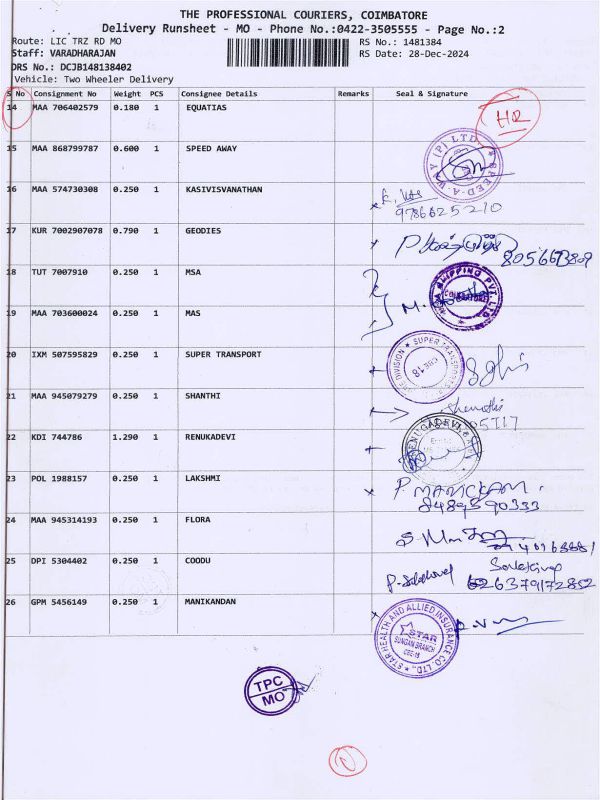 THE PROFESSIONAL COURIERS, COIMBATORE
Delivery Runsheet - MO - Phone No.:0422-3505555 - Page No.:2
Route: LIC TRZ RD MO
RS No.: 1481384
Staff: VARADHARAJAN
RS Date: 28-Dec-2024
DRS No.: DCJB148138402
Vehicle: Two Wheeler Delivery
S No Consignment No Weight PCS Consignee Details Remarks Seal & Signature
14 MAA 706402579 0.180 1 EQUATIAS
HR
15 MAA 868799787 0.600 1 SPEED AWAY
16 MAA 574730308 0.250 1 KASIVISVANATHAN
9786625210
17 KUR 7002907078 0.790 1 GEODIES
18 TUT 7007910 0.250 1 MSA
19 MAA 703600024 0.250 1 MAS
20 IXM 507595829 0.250 1 SUPER TRANSPORT
CBE-18
21 MAA 945079279 0.250 1 SHANTHI
Shanthi
22 KDI 744786 1.290 1 RENUKADEVI
23 POL 1988157 0.250 1 LAKSHMI
P. MANICKAM.
8489590333
24 MAA 945314193 0.250 1 FLORA
25 DPI 5304402 0.250 1 COODU
26 GPM 5456149 0.250 1 MANIKANDAN
STAR HEALTH AND ALLIED INSURANCE CO. LTD.
STAR
SUNGAM BRANCH
CBE-18
TPC
MO